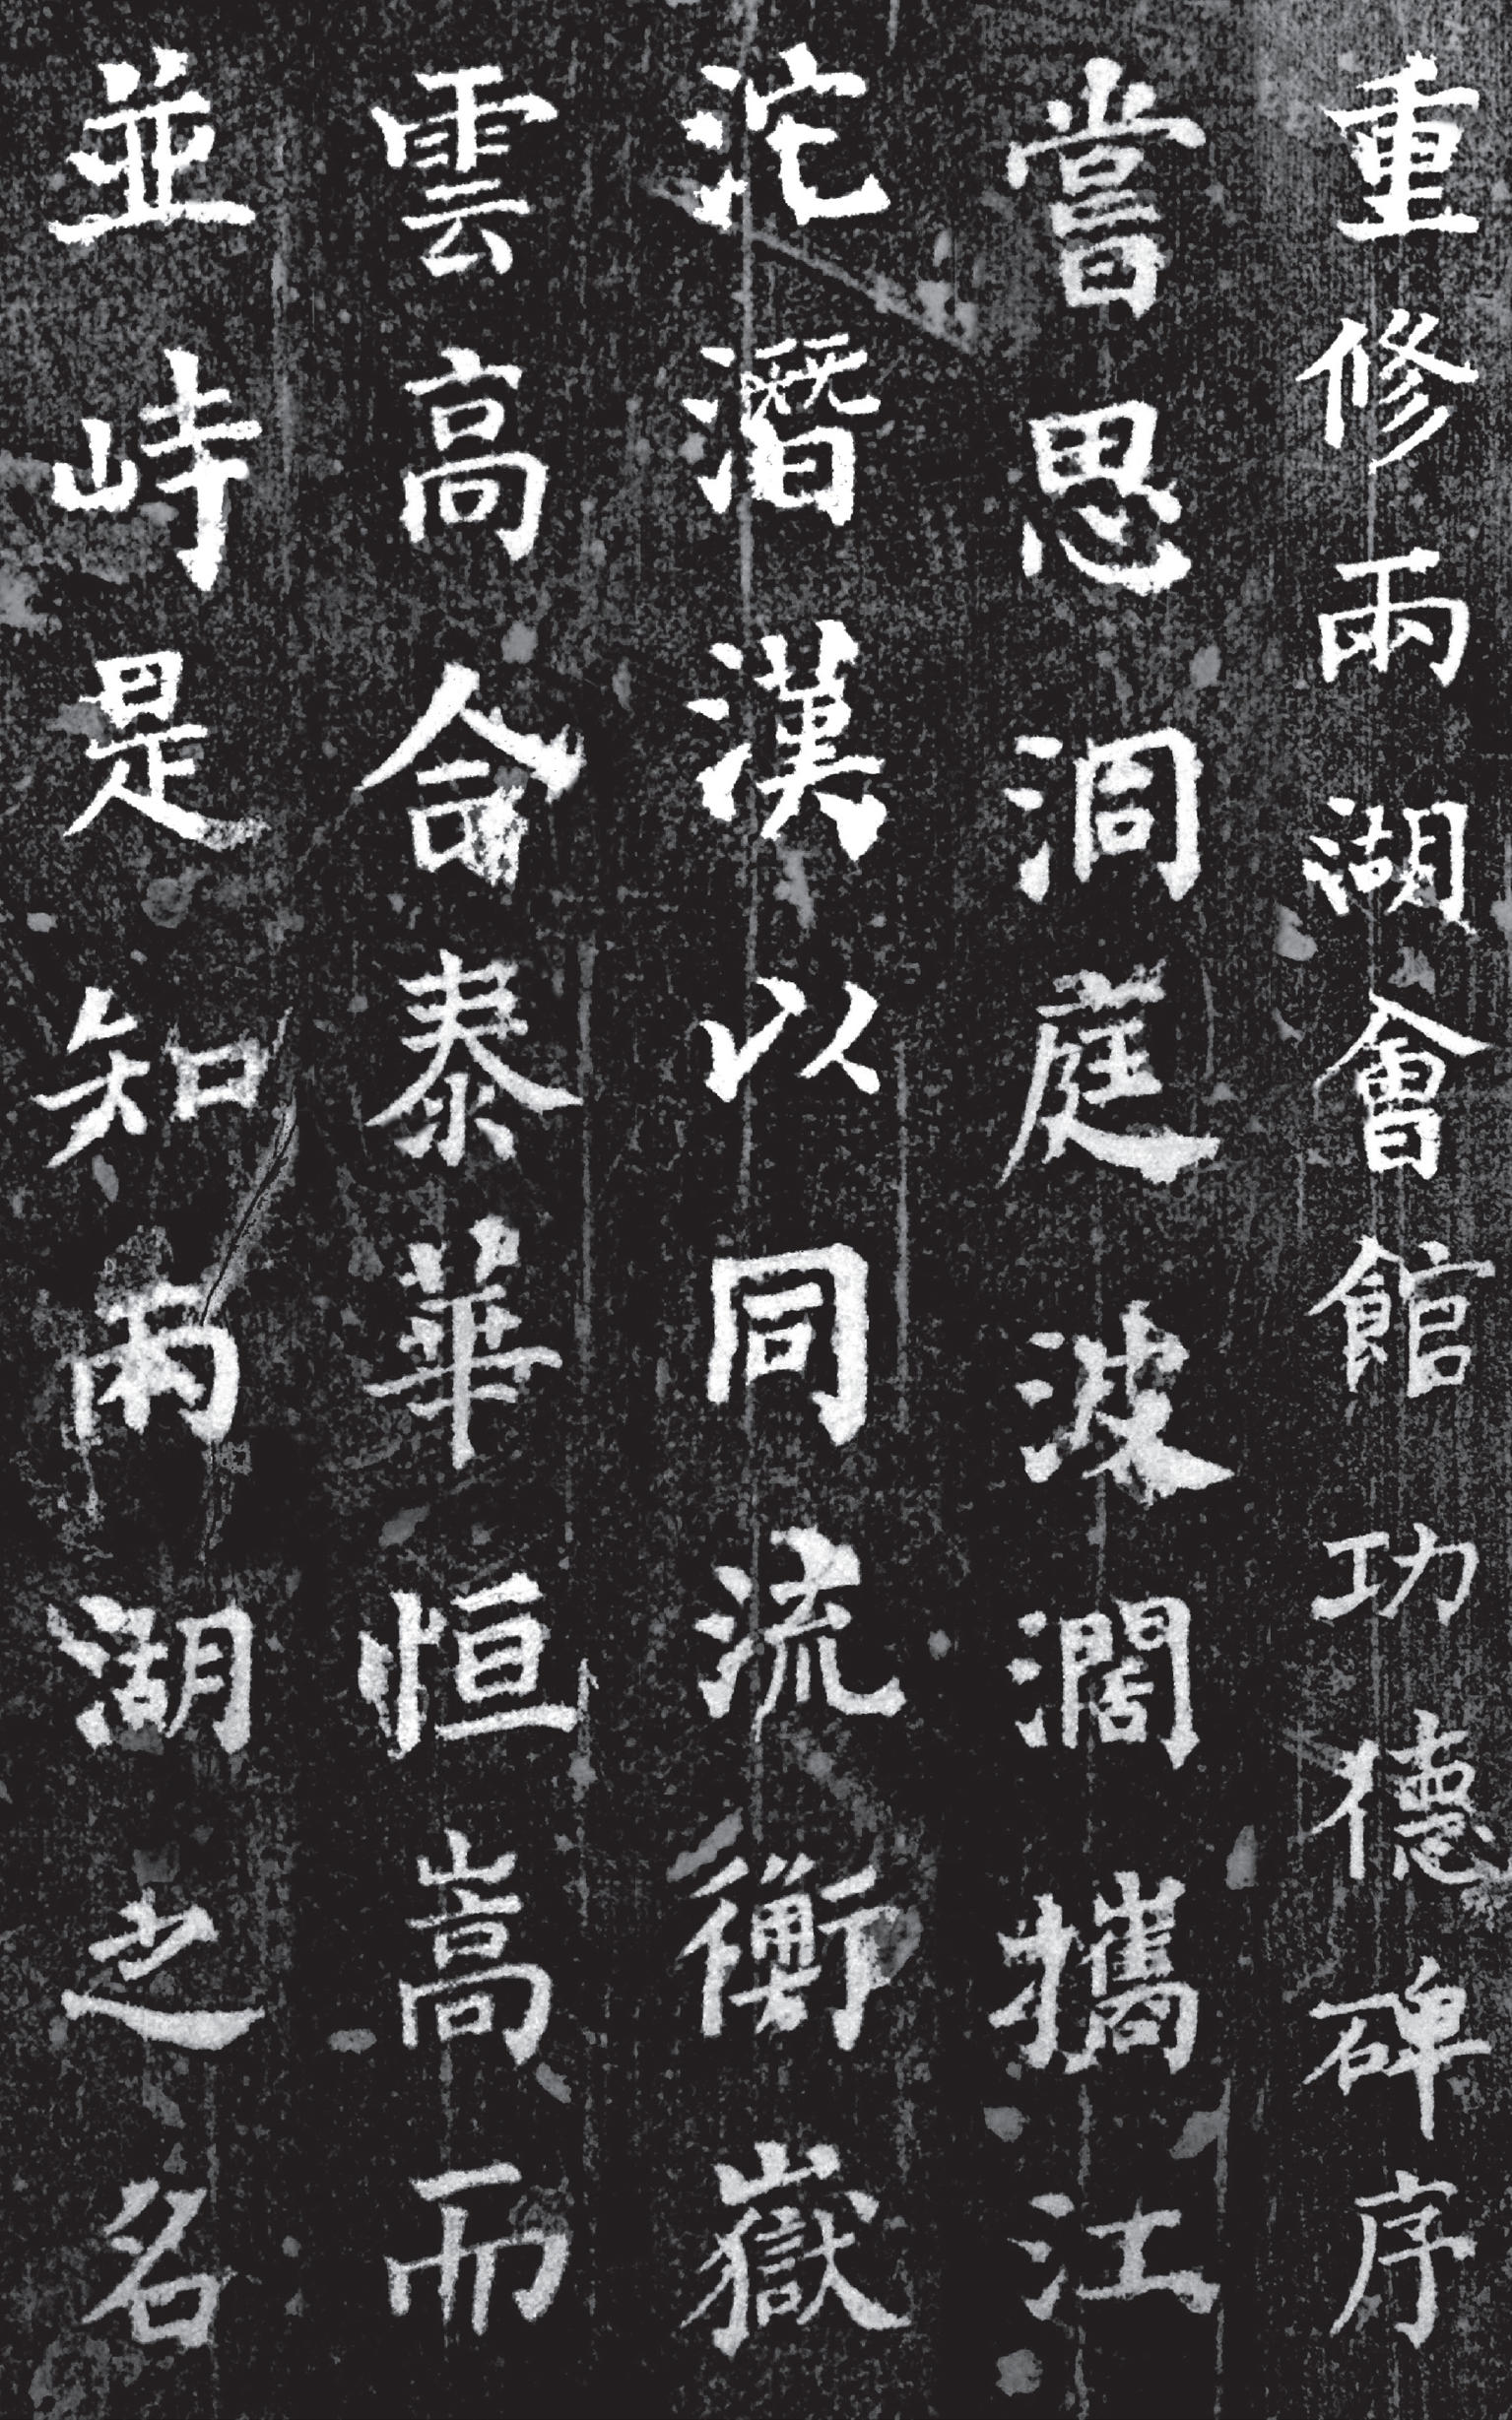 重修兩湖會館功德碑序
嘗思洞庭波濶攜江
沱潛漢以同流衡嶽
雲高合泰華恒嵩而
並峙是知兩湖之名